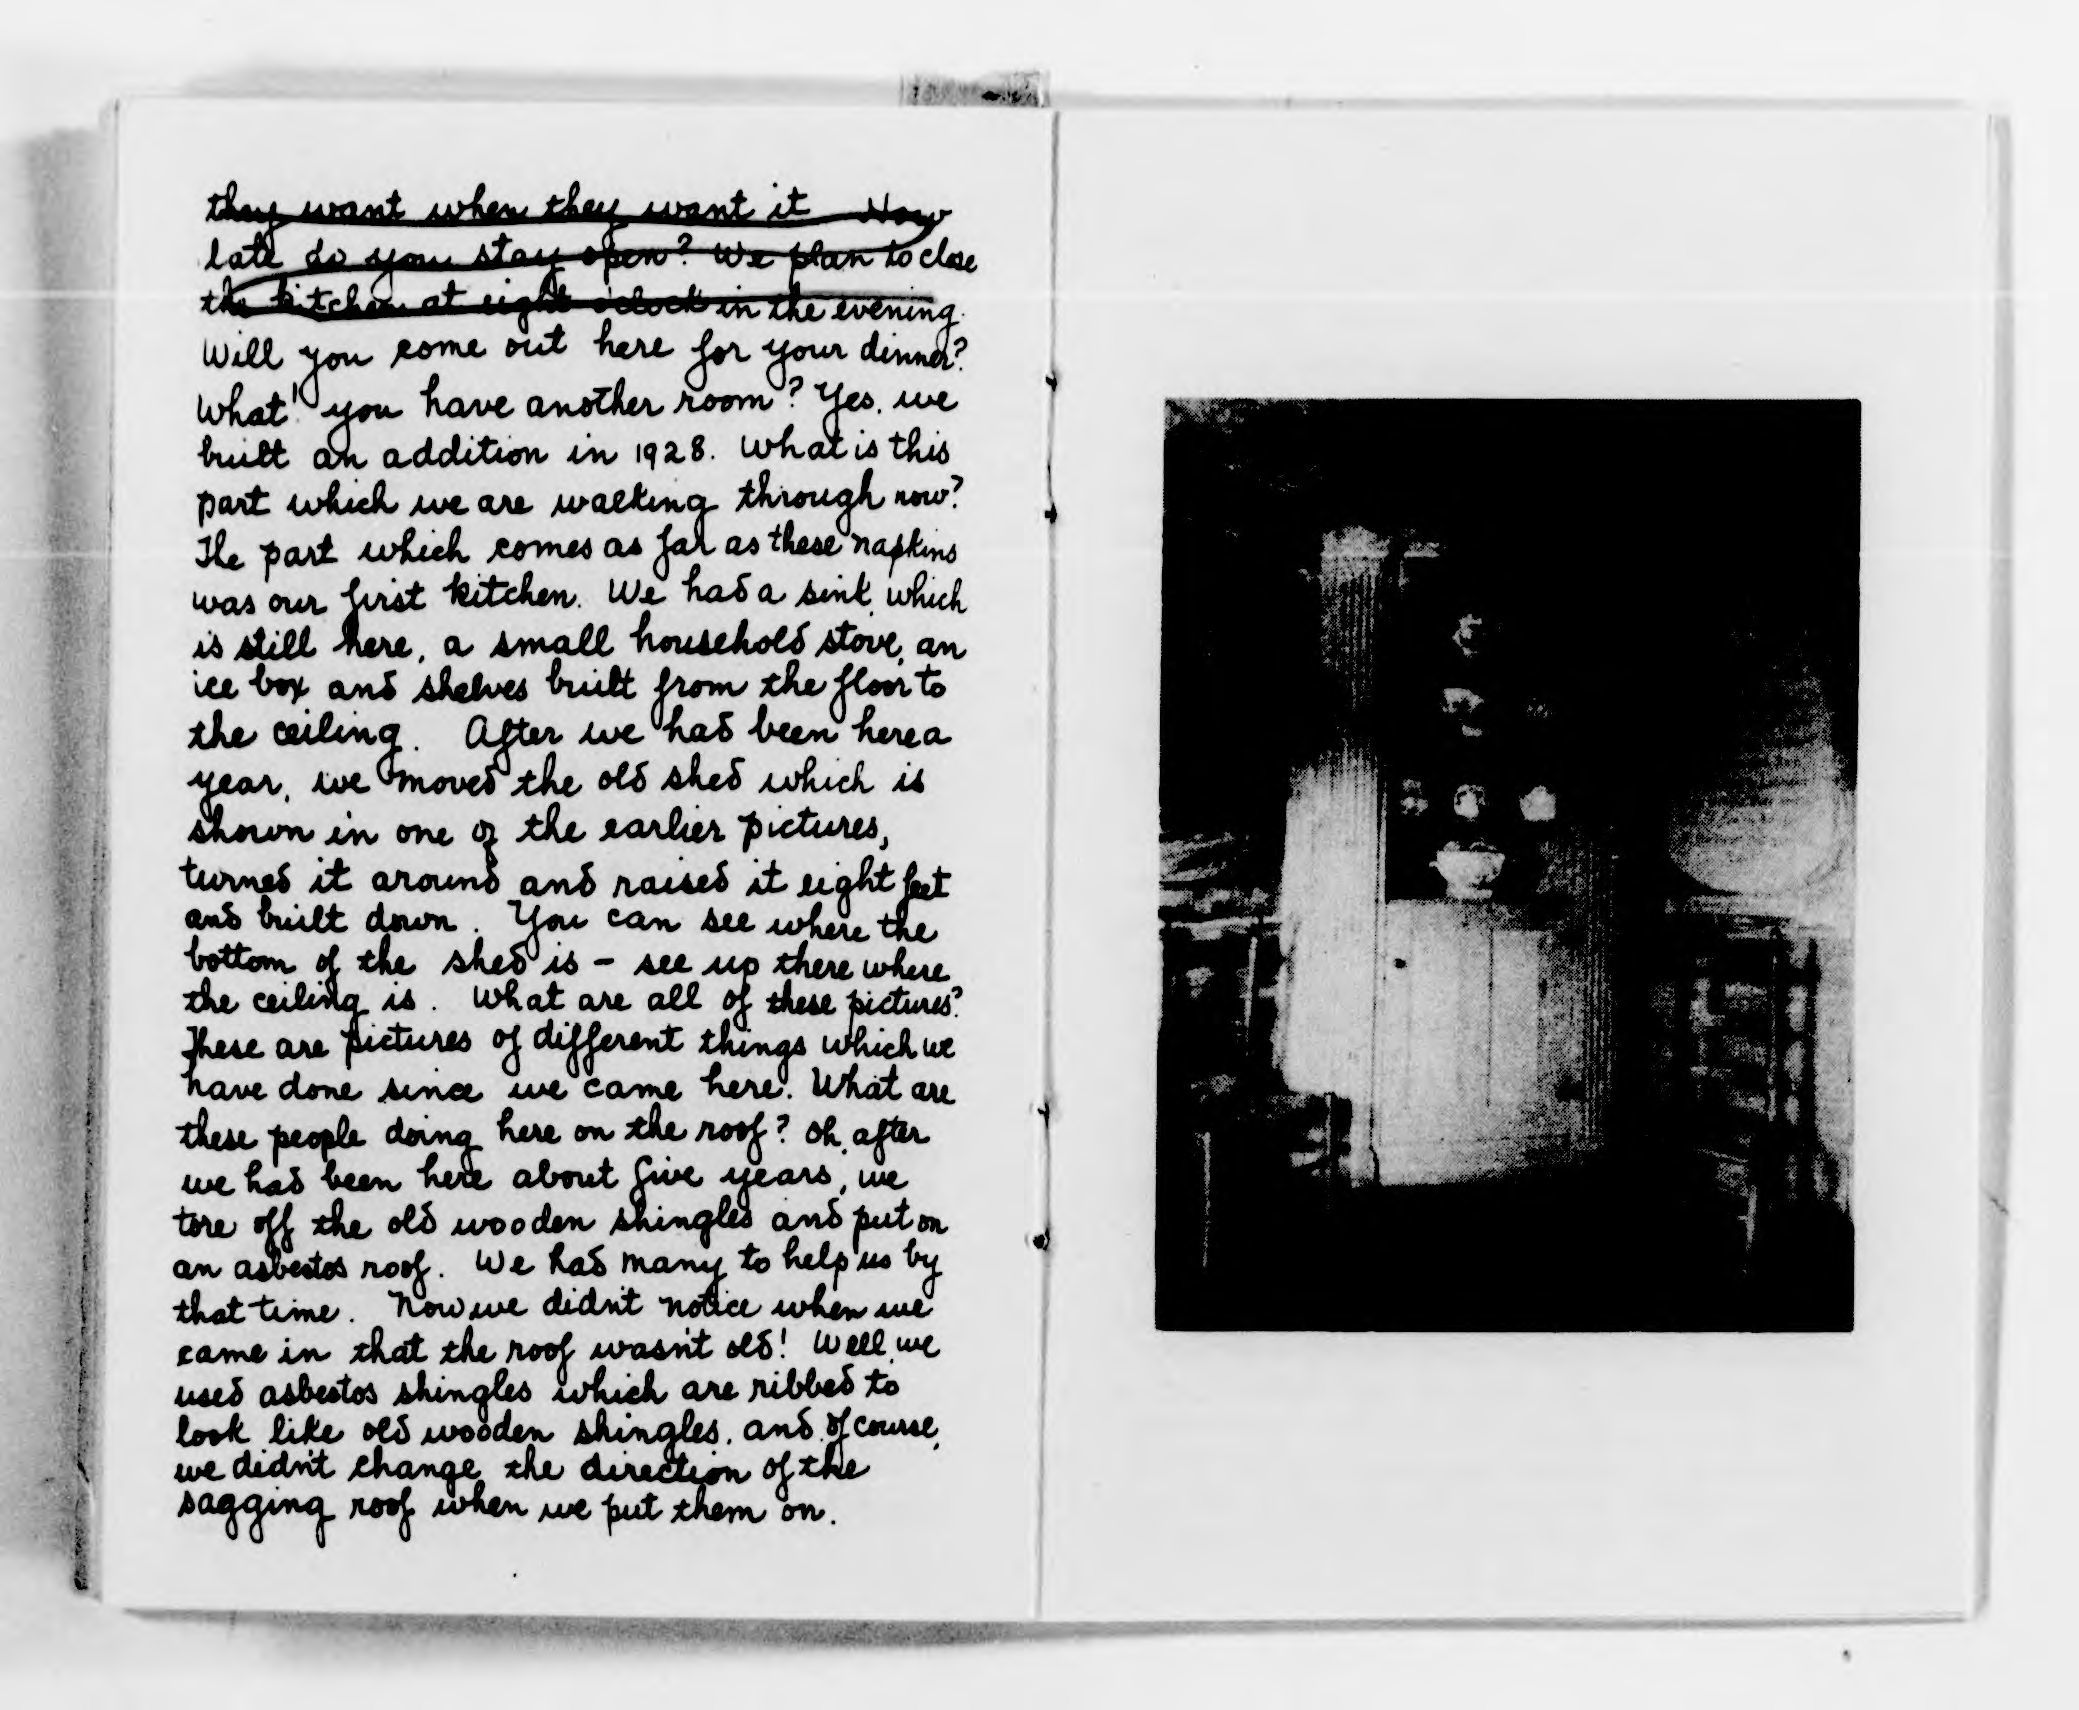 they want when they want it How
late do you stay open? We plan to close
the kitchen at eight o'clock in the evening.
Will you come out here for your dinner?
What! you have another room? Yes, we
built an addition in 1928. What is this
part which we are walking through now?
The part which comes as far as these napkins
was our first kitchen. We had a sink, which
is still here, a small household stove, an
ice box and shelves built from the floor to
the ceiling. After we had been here a
year, we moved the old shed which is
shown in one of the earlier pictures,
turned it around and raised it eight feet
and built down. You can see where the
bottom of the shed is - see up there where
the ceiling is. What are all of these pictures?
These are pictures of different things which we
have done since we came here. What are
these people doing here on the roof? Oh, after
we had been here about five years, we
tore off the old wooden shingles and put on
an asbestos roof. We had many to help us by
that time. Now we didn't notice when we
came in that the roof wasn't old! Well, we
used asbestos shingles which are ribbed to
look like old wooden shingles, and, of course,
we didn't change the direction of the
sagging roof when we put them on.